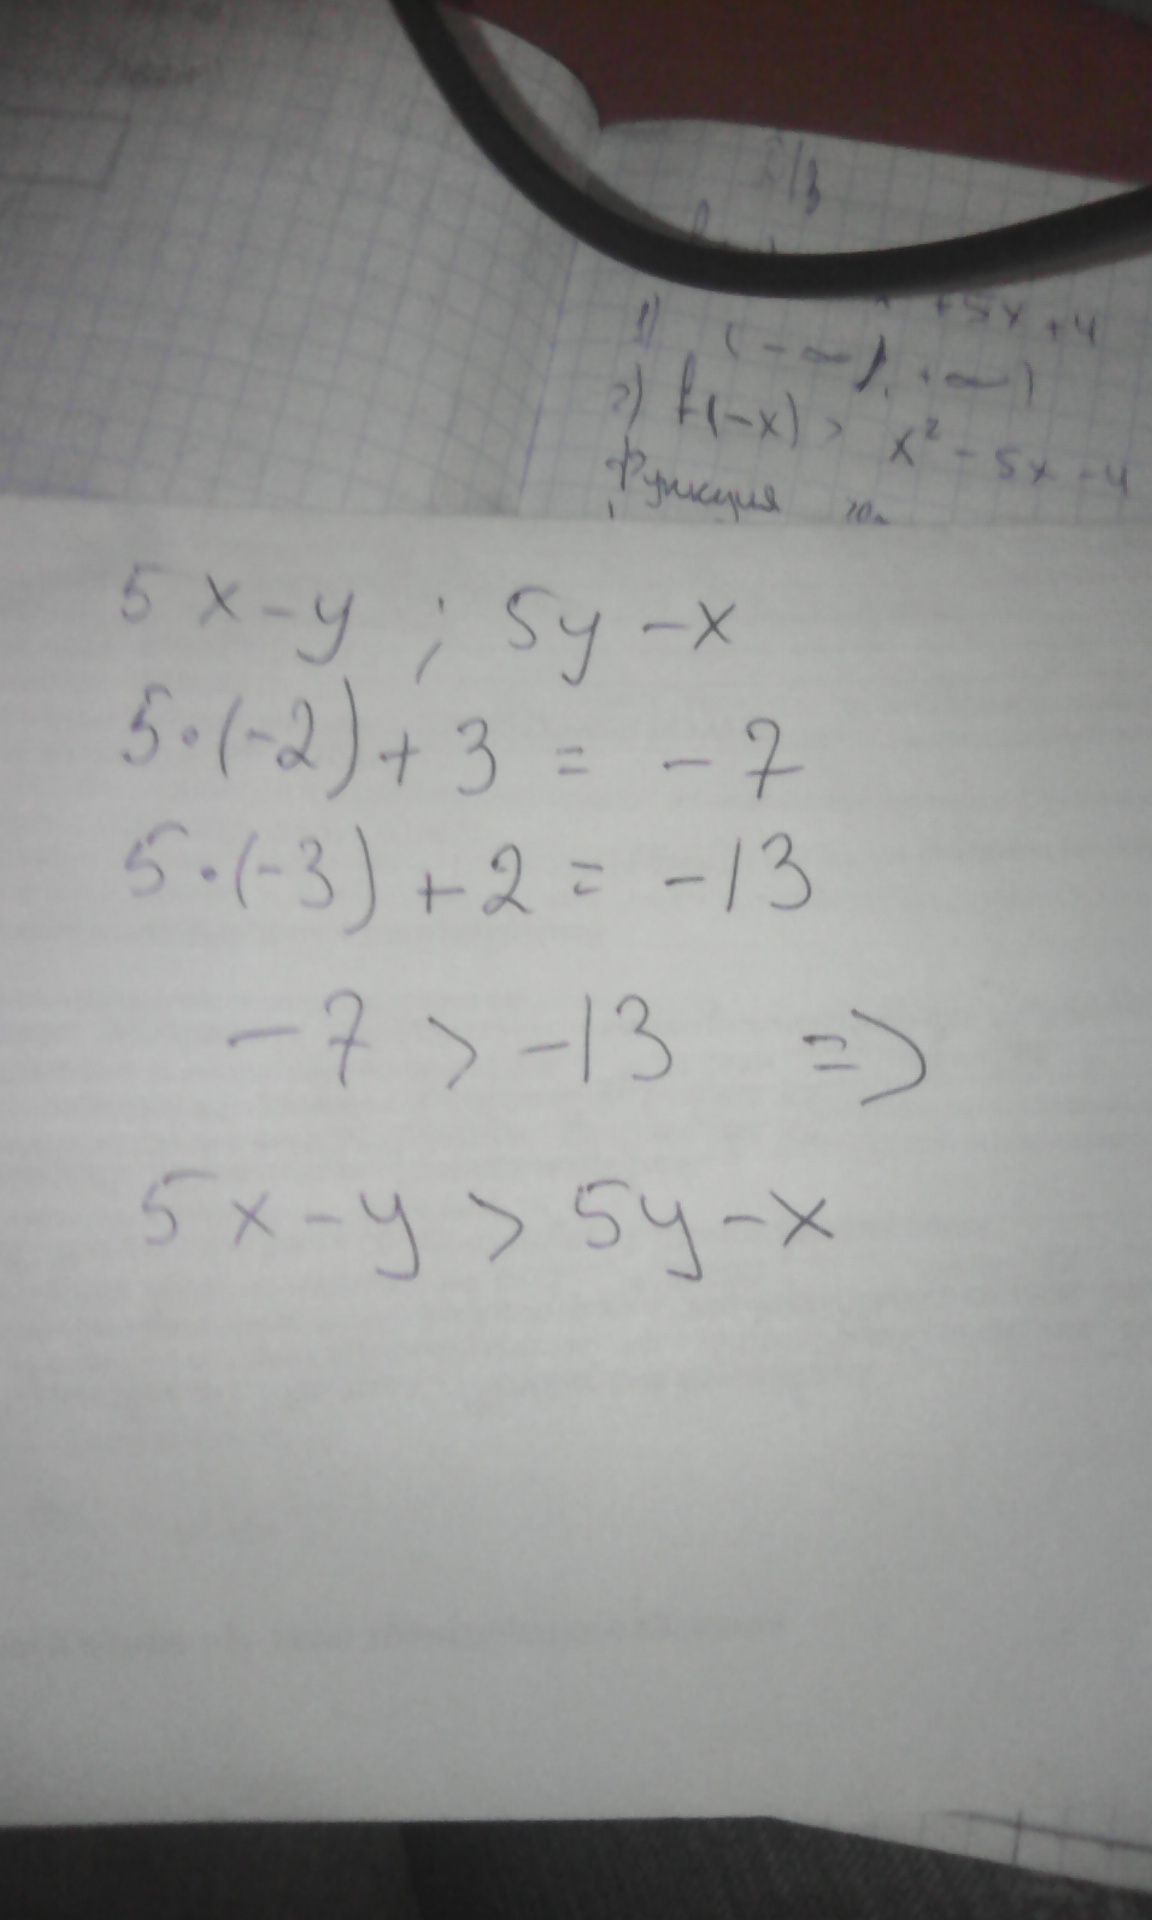 +5x +4
1) (-∞; +∞)
2) f(-x) = x² - 5x - 4
Функция
5x-y ; 5y-x
5·(-2)+3 = -7
5·(-3)+2 = -13
-7 > -13 =>
5x-y > 5y-x